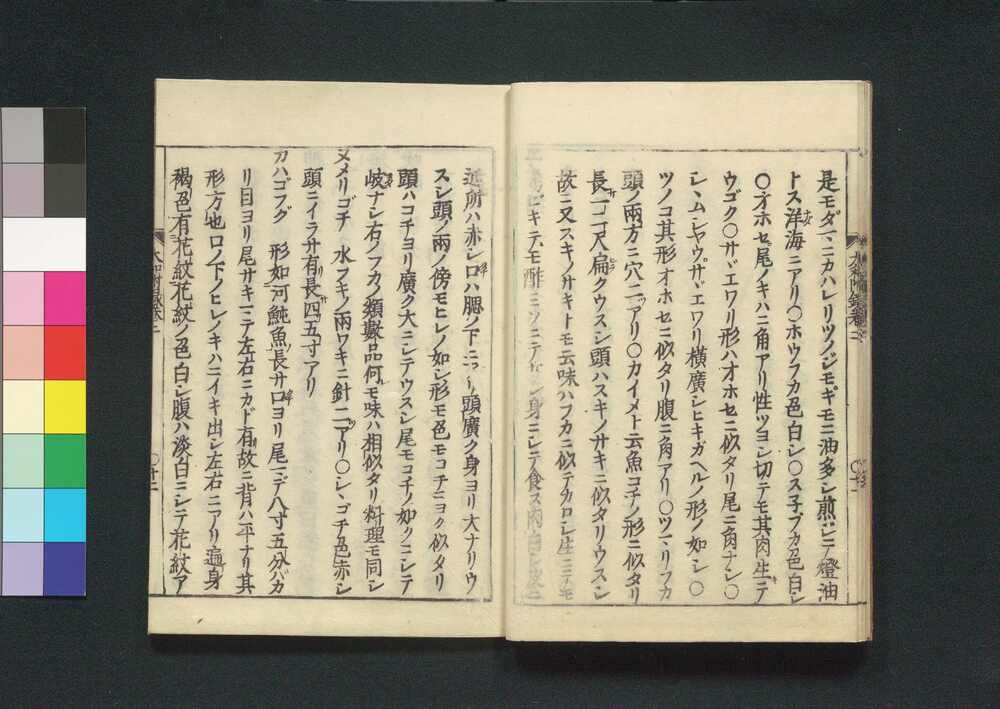 是モダマニカハレリツノジモギモニ油多シ煎ジテ燈油
トス洋海ニアリ〇ホウフカ色白シ〇スネブカ色白シ
〇オホセ尾ノキハニ角アリ性ツヨシ切テモ其肉生テ
ウゴク〇サヾエワリ形ハオホセニ似タリ尾ニ角ナシ〇
シヽムシャウサヾエワリ横廣シヒキガヘルノ形ノ如シ〇
ツノコ其形オホセニ似タリ腹ニ角アリ〇ツマリフカ
頭ノ兩方ニ穴二ツアリ〇カイメト云魚コチノ形ニ似タリ
長一二尺扁クウスシ頭ハスキノサキニ似タリウスシ
故ニ又スキノサキトモ云味ハフカニ似テカロシ生ニテモ
ビキテモ酢ミソニテ シ身ニシテ食ス肉白シ
近所ハ赤シ口ハ腮ノ下ニアリ頭廣ク身ヨリ大ナリウ
スシ頭ノ兩ノ傍モヒレノ如シ形モ色モコチニヨク似タリ
頭ハコチヨリ廣ク大ニシテウスシ尾モコチノ如クニシテ
岐ナシ右ノフカノ類數品何モ味ハ相似タリ料理モ同シ
ヌメリゴチ 水フキノ兩ワキニ針二ツアリ〇シヽゴチ色赤シ
頭ニイラサ有長四五寸アリ
カハゴフグ 形如河魨魚長サ口ヨリ尾マデ八寸五分バカ
リ目ヨリ尾サキマテ左右ニカド有故ニ背ハ平ナリ其
形方也口ノ下ノヒレノキハニイキ出シ左右ニアリ遍身
褐色有花紋花紋ノ色白シ腹ハ淡白ニシテ花紋ア
大和本草附錄卷二
〇十二